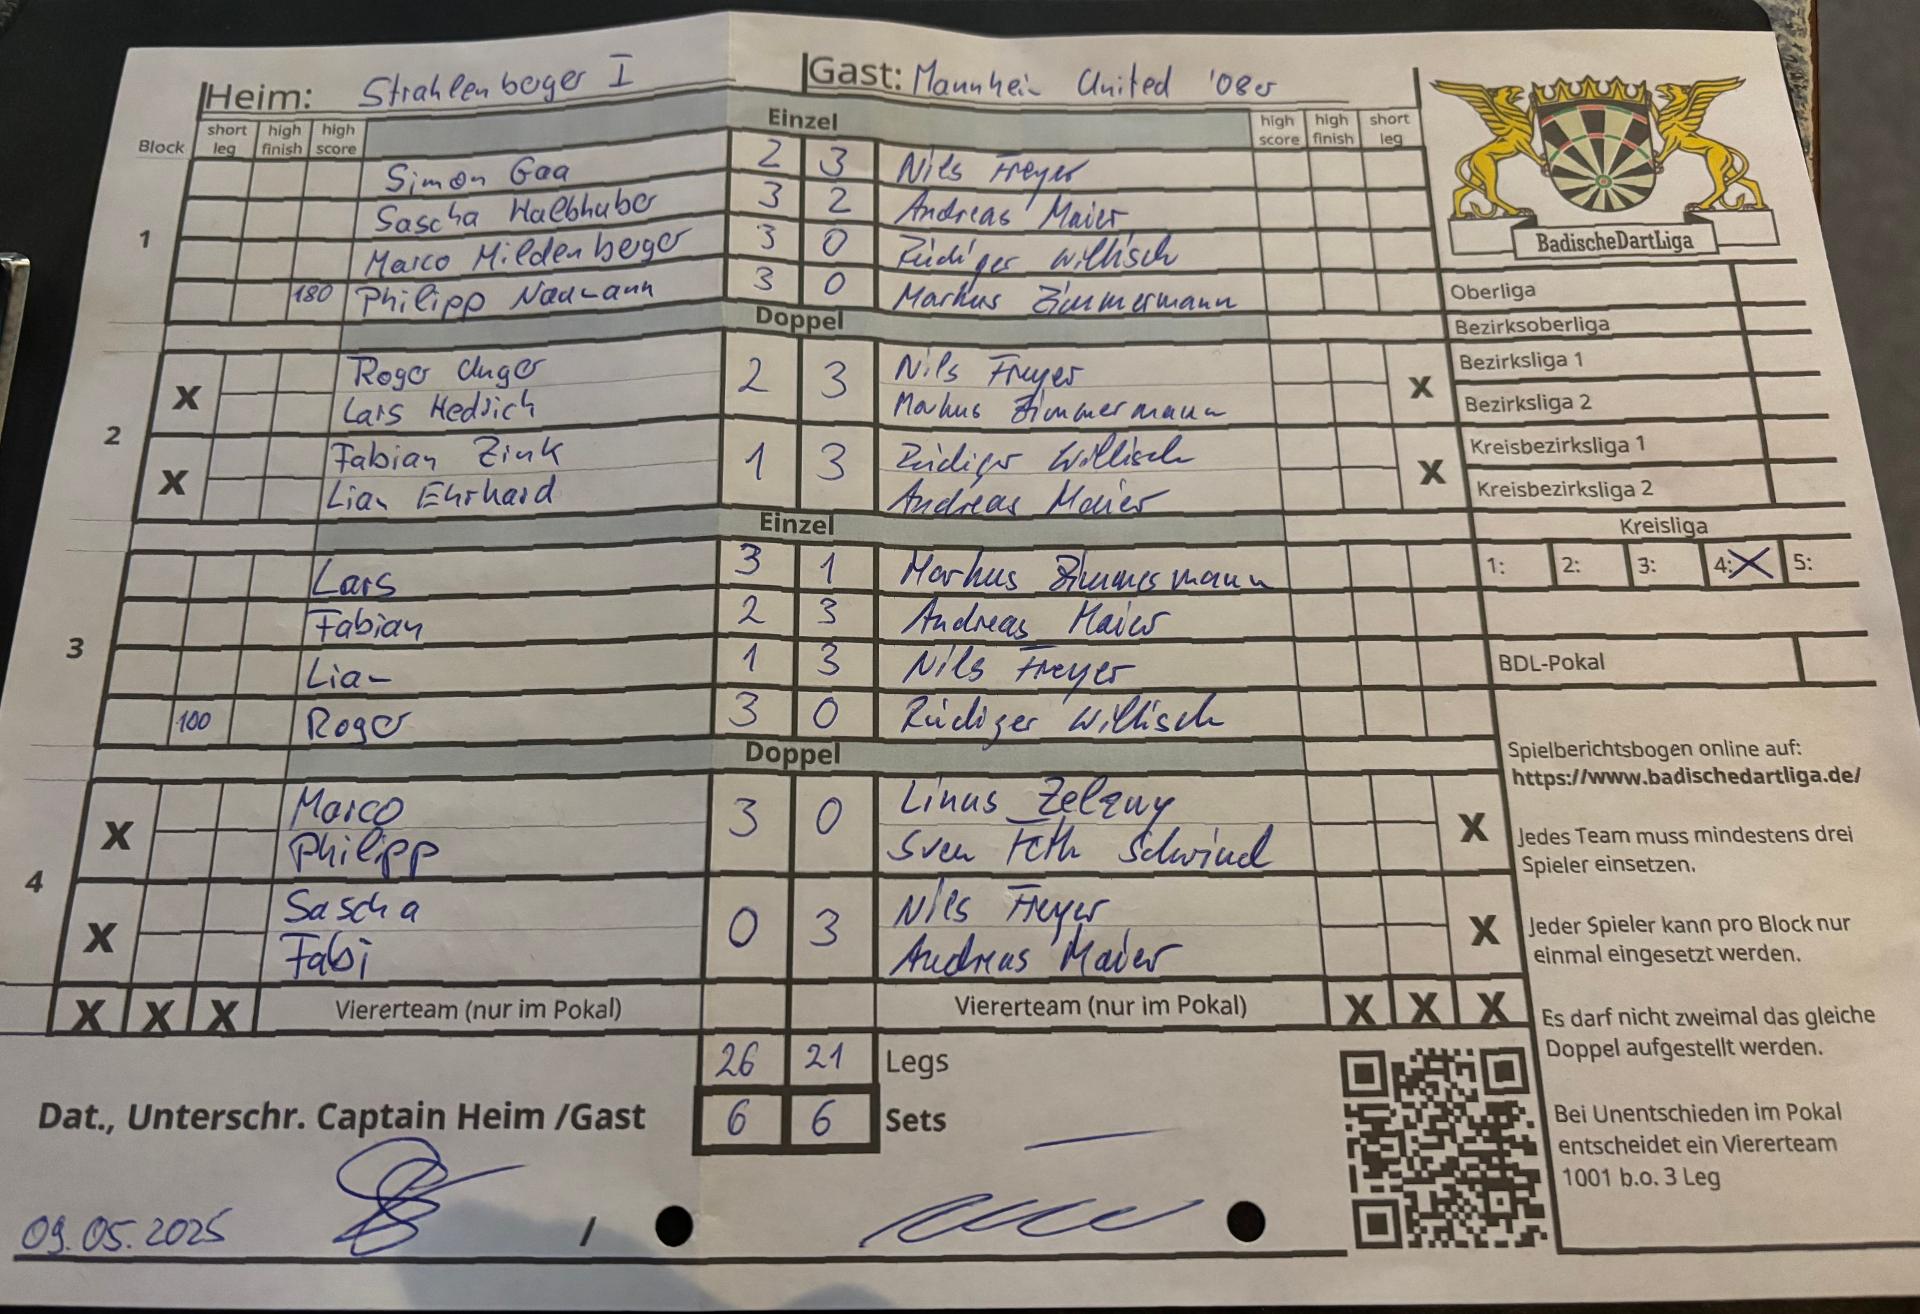 Heim: Strahlenberger I Gast: Mannheim United '08er
Block short leg high finish high score Einzel high score high finish short leg
1
Simon Gaa 2 3 Nils Freyer
Sascha Halbhuber 3 2 Andreas Maier
Marco Mildenberger 3 0 Rüdiger Willisch
180 Philipp Naumann 3 0 Markus Zimmermann
Doppel
2
X Roger Unger 2 3 Nils Freyer X
Lars Hedrich Markus Zimmermann
X Fabian Zink 1 3 Rüdiger Willisch X
Lian Ehrhard Andreas Maier
Einzel
3
Lars 3 1 Markus Zimmermann
Fabian 2 3 Andreas Maier
Lian 1 3 Nils Freyer
100 Roger 3 0 Rüdiger Willisch
Doppel
4
X Marco 3 0 Linus X
Philipp Sven Feth Schwind
X Sascha 0 3 Nils Freyer X
Fabi Andreas Maier
X X X Viererteam (nur im Pokal) Viererteam (nur im Pokal) X X X
26 21 Legs
6 6 Sets
Dat., Unterschr. Captain Heim /Gast
09.05.2025 /
BadischeDartLiga
Oberliga
Bezirksoberliga
Bezirksliga 1
Bezirksliga 2
Kreisbezirksliga 1
Kreisbezirksliga 2
Kreisliga
1: 2: 3: 4: X 5:
BDL-Pokal
Spielberichtsbogen online auf:
https://www.badischedartliga.de/
Jedes Team muss mindestens drei
Spieler einsetzen.
Jeder Spieler kann pro Block nur
einmal eingesetzt werden.
Es darf nicht zweimal das gleiche
Doppel aufgestellt werden.
Bei Unentschieden im Pokal
entscheidet ein Viererteam
1001 b.o. 3 Leg